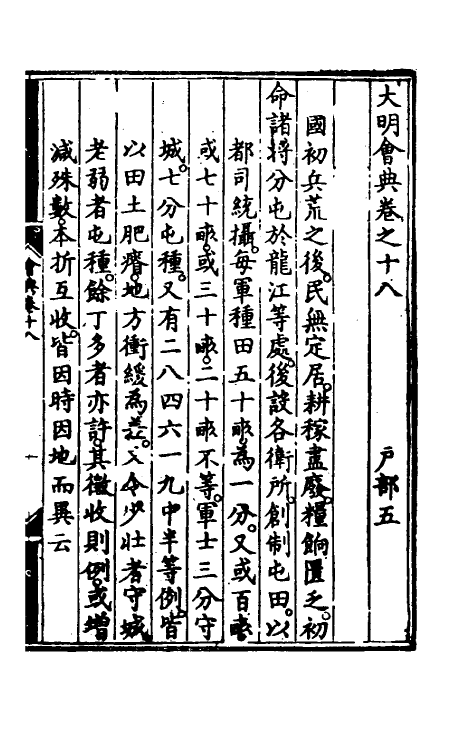 大明會典卷之十八　户部五
國初兵荒之後。民無定居。耕稼盡廢。糧餉匱乏。初
命諸將分屯於龍江等處。後設各衛所。創制屯田。以
都司統攝。每軍種田五十畝。為一分。又或百畝。
或七十畝。或三十畝。二十畝不等。軍士三分守
城。七分屯種。又有二八四六一九中半等例。皆
以田土肥瘠。地方衝緩為差。又令少壯者守城。
老弱者屯種。餘丁多者亦許。其徵收則例。或增
減殊數。本折互收。皆因時因地而異云
會典卷十八